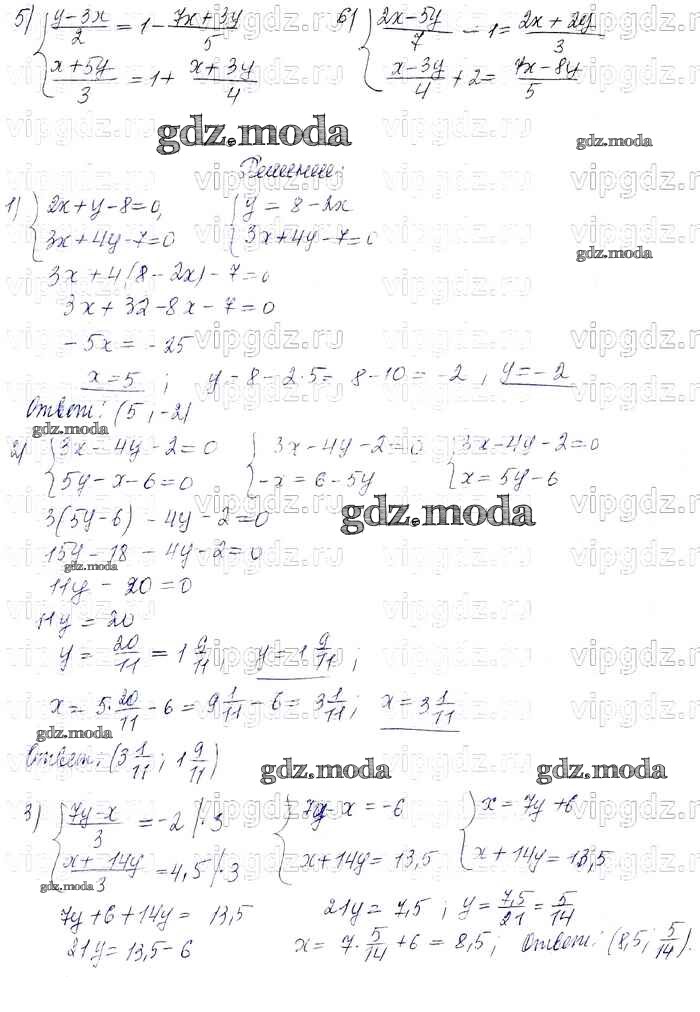 5) { (y-3x)/2 = 1 - (7x+3y)/5   6) { (2x-5y)/7 - 1 = (2x+2y)/3
(x+5y)/3 = 1 + (x+3y)/4   (x-3y)/4 + 2 = (4x-8y)/5
gdz.moda
gdz.moda
Решение:
1) { 2x+y-8=0,   { y = 8-2x
3x+4y-7=0   3x+4y-7=0
gdz.moda
3x+4(8-2x)-7=0
3x+32-8x-7=0
-5x=-25
x=5 ; y-8-2·5= 8-10=-2, y=-2
Ответ: (5; -2)
gdz.moda
2) { 3x-4y-2=0   { 3x-4y-2=0   { 3x-4y-2=0
5y-x-6=0   -x=6-5y   x=5y-6
3(5y-6)-4y-2=0
gdz.moda
15y-18-4y-2=0
gdz.moda
11y-20=0
11y=20
y = 20/11 = 1 9/11, y=1 9/11 ;
x = 5·20/11 - 6 = 9 1/11 - 6 = 3 1/11 ; x = 3 1/11
gdz.moda
Ответ: (3 1/11 ; 1 9/11)
gdz.moda
3) { (7y-x)/3 = -2 |·3   { 7y-x=-6   { x=7y+6
(x+14y)/3 = 4,5 |·3   x+14y=13,5   x+14y=13,5
gdz.moda
7y+6+14y=13,5   21y=7,5 ; y= 7,5/21 = 5/14
21y=13,5-6   x= 7·5/14 +6 = 8,5; Ответ: (8,5; 5/14).
vipgdz.ru